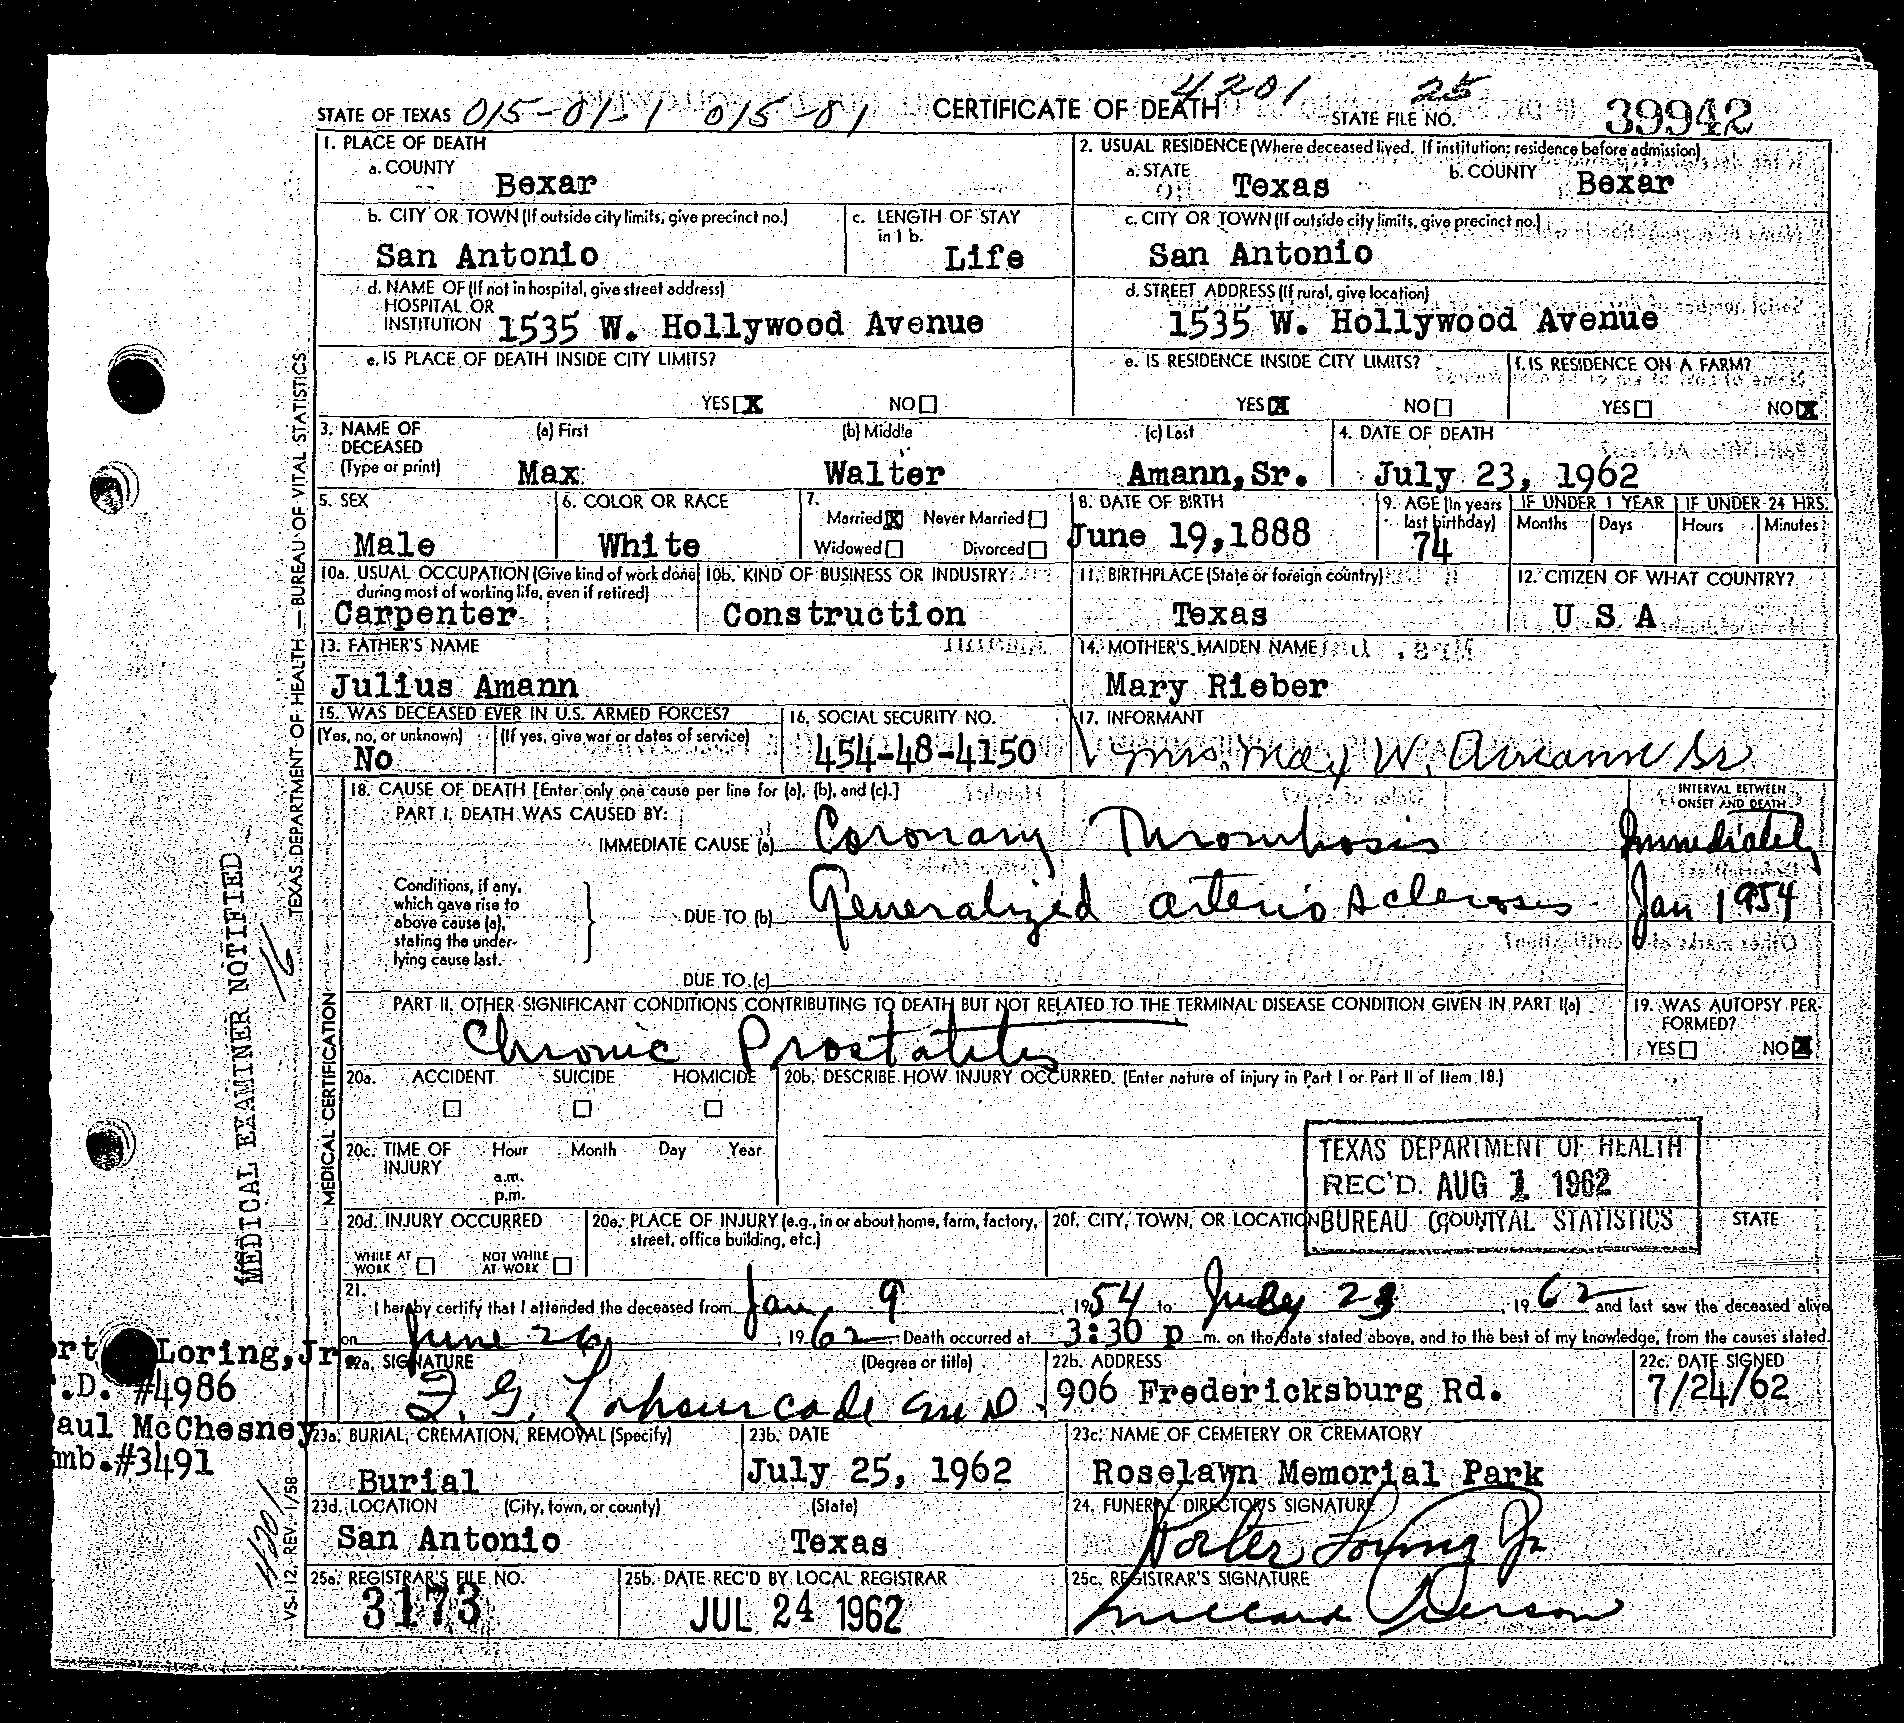 STATE OF TEXAS 015-01-1 015-01 CERTIFICATE OF DEATH 4201 STATE FILE NO. 25 39942
1. PLACE OF DEATH
a. COUNTY Bexar
b. CITY OR TOWN (If outside city limits, give precinct no.) San Antonio
c. LENGTH OF STAY in 1 b. Life
d. NAME OF (If not in hospital, give street address)
HOSPITAL OR
INSTITUTION 1535 W. Hollywood Avenue
e. IS PLACE OF DEATH INSIDE CITY LIMITS?
YES X NO
2. USUAL RESIDENCE (Where deceased lived. If institution: residence before admission)
a. STATE Texas b. COUNTY Bexar
c. CITY OR TOWN (If outside city limits, give precinct no.)
San Antonio
d. STREET ADDRESS (If rural, give location)
1535 W. Hollywood Avenue
e. IS RESIDENCE INSIDE CITY LIMITS?
YES X NO
f. IS RESIDENCE ON A FARM?
YES NO X
3. NAME OF DECEASED (Type or print)
(a) First Max (b) Middle Walter (c) Last Amann, Sr.
4. DATE OF DEATH
July 23, 1962
5. SEX
Male
6. COLOR OR RACE
White
7. Married X Never Married
Widowed Divorced
8. DATE OF BIRTH
June 19,1888
9. AGE (In years last birthday)
74
IF UNDER 1 YEAR
Months Days
IF UNDER 24 HRS.
Hours Minutes
10a. USUAL OCCUPATION (Give kind of work done during most of working life, even if retired)
Carpenter
10b. KIND OF BUSINESS OR INDUSTRY
Construction
11. BIRTHPLACE (State or foreign country)
Texas
12. CITIZEN OF WHAT COUNTRY?
U S A
13. FATHER'S NAME
Julius Amann
14. MOTHER'S MAIDEN NAME
Mary Rieber
15. WAS DECEASED EVER IN U.S. ARMED FORCES?
(Yes, no, or unknown) (If yes, give war or dates of service)
No
16. SOCIAL SECURITY NO.
454-48-4150
17. INFORMANT
Mrs. Max W. Amann Sr
18. CAUSE OF DEATH [Enter only one cause per line for (a), (b), and (c).]
PART I. DEATH WAS CAUSED BY:
IMMEDIATE CAUSE (a) Coronary Thrombosis
INTERVAL BETWEEN ONSET AND DEATH
Immediately
Conditions, if any, which gave rise to above cause (a), stating the underlying cause last.
DUE TO (b) Generalized arterio sclerosis Jan 1954
DUE TO (c)
PART II. OTHER SIGNIFICANT CONDITIONS CONTRIBUTING TO DEATH BUT NOT RELATED TO THE TERMINAL DISEASE CONDITION GIVEN IN PART I(a)
Chronic Prostatitis
19. WAS AUTOPSY PERFORMED?
YES NO X
20a. ACCIDENT SUICIDE HOMICIDE
20b. DESCRIBE HOW INJURY OCCURRED. (Enter nature of injury in Part I or Part II of Item 18.)
20c. TIME OF INJURY Hour Month Day Year
a.m.
p.m.
TEXAS DEPARTMENT OF HEALTH
REC'D. AUG 1 1962
BUREAU OF VITAL STATISTICS
20d. INJURY OCCURRED
WHILE AT WORK NOT WHILE AT WORK
20e. PLACE OF INJURY (e.g., in or about home, farm, factory, street, office building, etc.)
20f. CITY, TOWN, OR LOCATION COUNTY STATE
21.
I hereby certify that I attended the deceased from Jan. 9, 1954 to July 23, 1962 and last saw the deceased alive
on June 26, 1962 Death occurred at 3:30 p m. on the date stated above, and to the best of my knowledge, from the causes stated.
22a. SIGNATURE (Degree or title)
22b. ADDRESS
906 Fredericksburg Rd.
22c. DATE SIGNED
7/24/62
23a. BURIAL, CREMATION, REMOVAL (Specify)
Burial
23b. DATE
July 25, 1962
23c. NAME OF CEMETERY OR CREMATORY
Roselawn Memorial Park
23d. LOCATION (City, town, or county) (State)
San Antonio Texas
24. FUNERAL DIRECTOR'S SIGNATURE
Porter Loring Jr
25a. REGISTRAR'S FILE NO.
3173
25b. DATE REC'D BY LOCAL REGISTRAR
JUL 24 1962
25c. REGISTRAR'S SIGNATURE
TEXAS DEPARTMENT OF HEALTH — BUREAU OF VITAL STATISTICS
MEDICAL CERTIFICATION
MEDICAL EXAMINER NOTIFIED
VS-112, REV. 1/58
4201
rt Loring, Jr.
.D. #4986
aul McChesney
mb.#3491